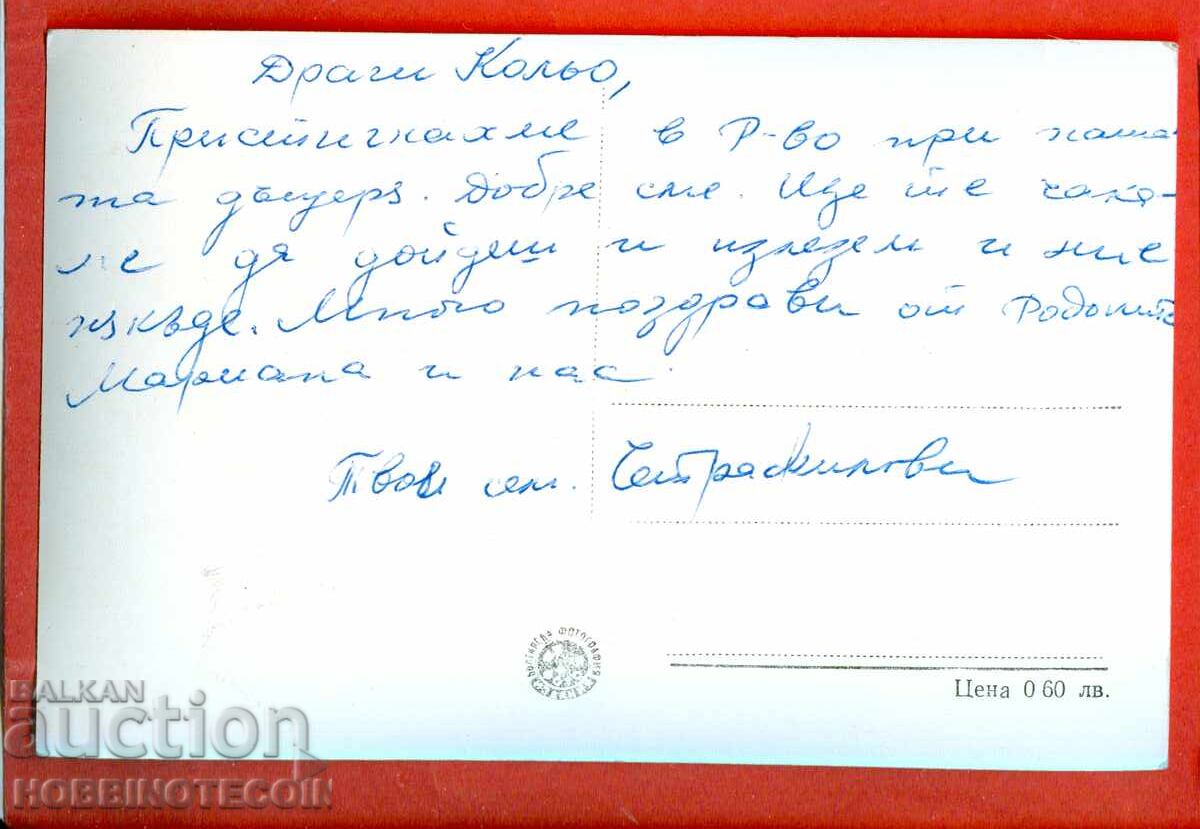 Драги Кольо,
Пристигнахме в Р-во при наша-
та дъщеря. Добре сме. Ще те чака-
ме да дойдеш и излезем и ние
някъде. Много поздрави от Родопите
Мариана и нас.
Твои сем.
БЪЛГАРСКА ФОТОГРАФИЯ
Цена 0 60 лв.
BALKAN
auction
HOBBINOTECOIN